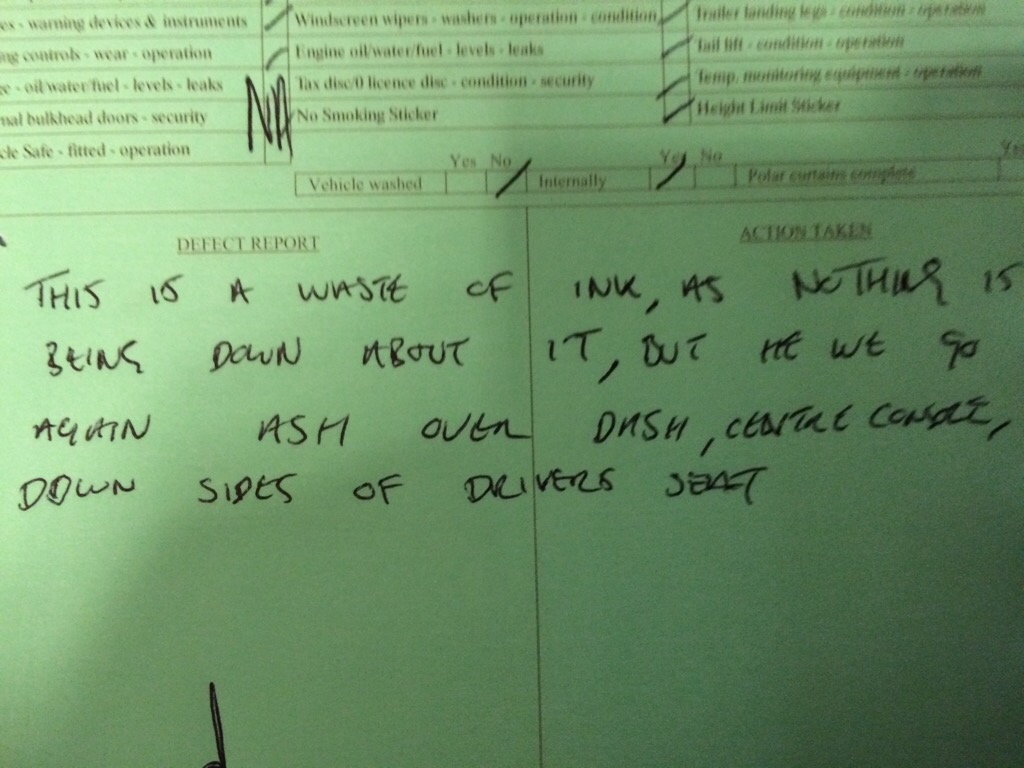 es - warning devices & instruments
Windscreen wipers - washers - operation - condition
Trailer landing legs - condition - operation
ng controls - wear - operation
Engine oil/water/fuel - levels - leaks
Tail lift - condition - operation
e - oil/water/fuel - levels - leaks
Tax disc/0 licence disc - condition - security
Temp. monitoring equipment - operation
nal bulkhead doors - security
NA
No Smoking Sticker
Height Limit Sticker
cle Safe - fitted - operation
Yes No
Yes No
Yes
Vehicle washed
Internally
Polar curtains complete
DEFECT REPORT
ACTION TAKEN
THIS IS A WASTE OF INK, AS NOTHING IS
BEING DOWN ABOUT IT, BUT HE WE GO
AGAIN ASH OVER DASH, CENTRE CONSOLE,
DOWN SIDES OF DRIVERS SEAT